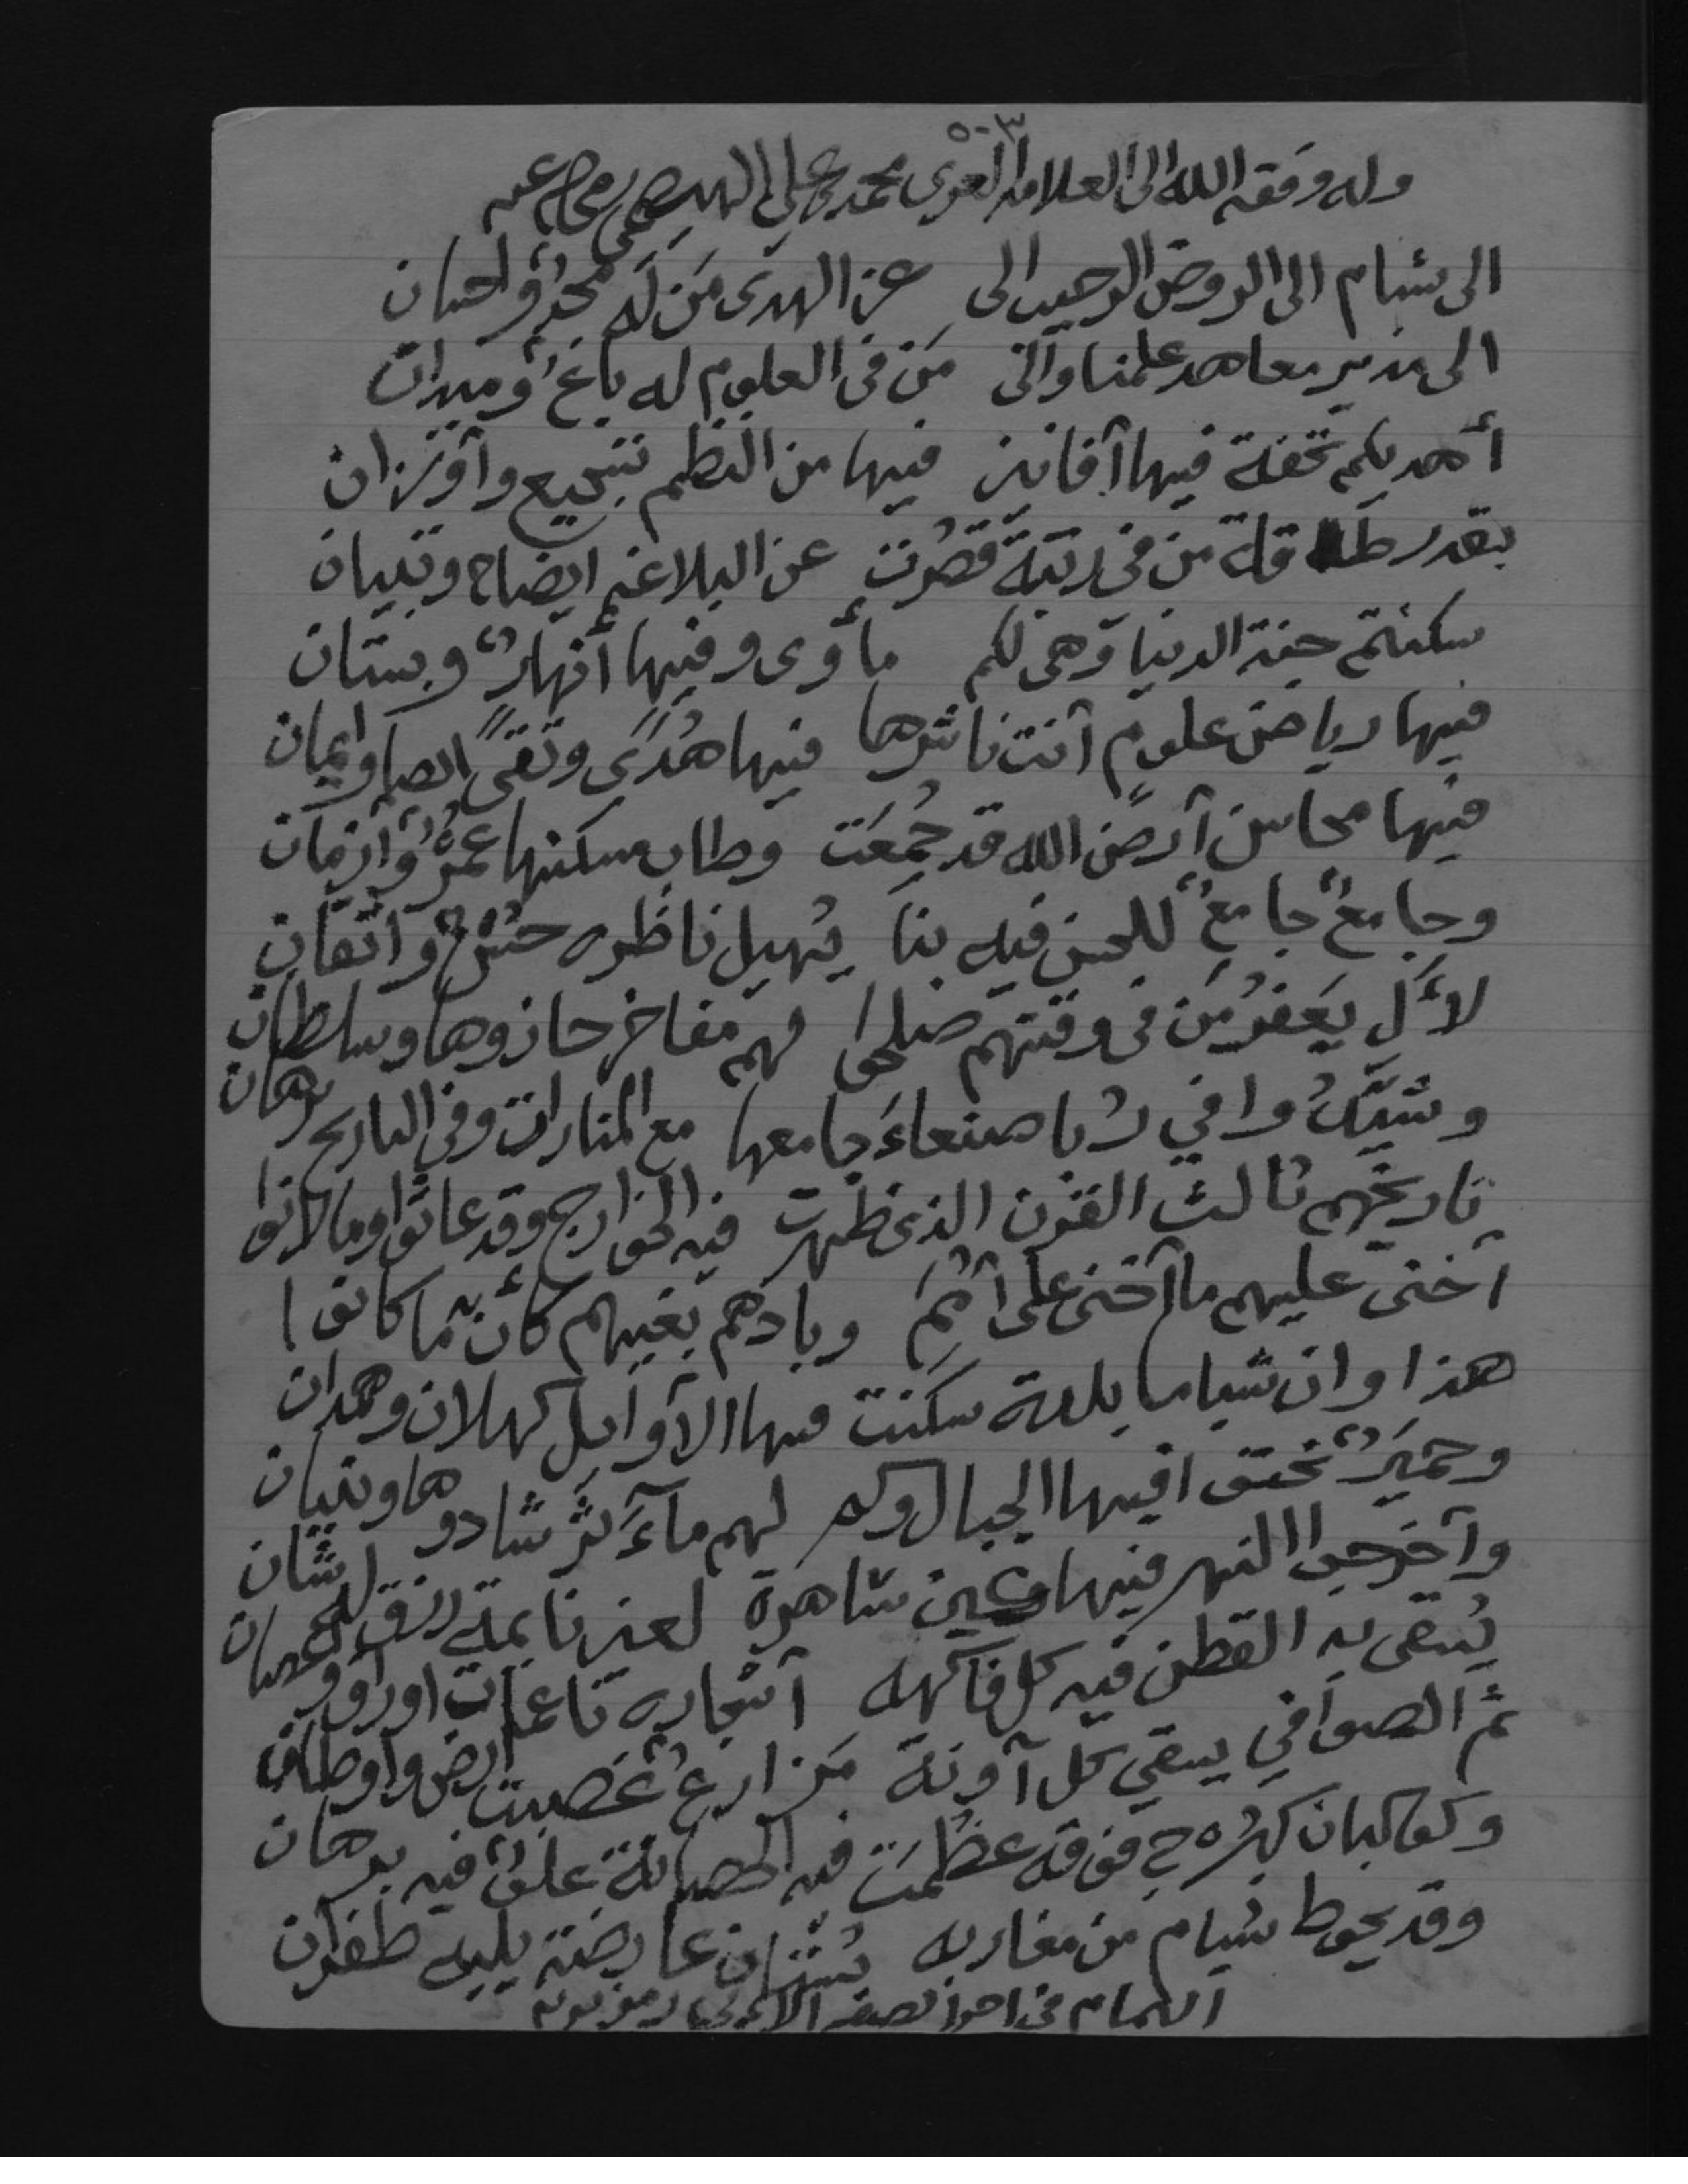 ٥٠٣
وله وفقه الله الى العلامه العزى محمد علي
الى شبام الى الروض الرحيب الى عز الهدى مَن لَه مجدٌ واحسان
الى مدير معاهد علمنا والى مَن فى العلوم له باعٌ وميدان
أهديكم تحفة فيها آفانين فيها من النظم تسجيع وآوزان
بقدر طاقة من فى رتبة قصُرت عن البلاغه ايضاح وتبيان
سكنتم جنة الدنيا وَهى لكم مأوى وفيها أنهارٌ وبستان
فيها رياض علومٍ آنت ناشرها فيها هُدًى وتقىً ايصا وايمان
فيها محاسن آرض الله قد جُمِعَت وطاب مسكنها عمرٌ وازمان
وجامعٌ جامعٌ للحسن فيه بنا يُهيل ناظره حسنٌ وآتقان
لآل يَعفُرمَن فى وقتهم صلحوا لهم مفاخر حازوها وسلطان
وشيّدُوا في رُبا صنعاءَ جامعها مع المنارات وفى التاريخ برهان
تاريخهم ثالث القرن الذى ظهرت فيه الخوارج وقد عاثوا وما لانوا
آخنى عليهم ما آخنى على آمُمٍ وبادهم بغيهم كأنّه ما كانوا ا
هذا وان شباما بلدة سكنت فيها الآوايل كهلان وهمدان
وحميَرٌ نحتوا فيها الجبال وكم لهم مآثر شادوها وتبيان
وآخرجوا النهر فيها وعين شاهرة لعنرنا بمتة رزق للانسان
يُسقى به القطن فيه كل فاكهه آشجاره ناعمات اوراق وغصان
ثمّ الصوافي يسقي كل آونة مَزارعٌ غصبت ارض وآوطان
وكوكبان كبُرج فوقه عظُمَت فيه الحصانة علوٌ فيه برهان
وقد يحوط شبام من مغاربه عارضة يليه ظفران
التمام فى